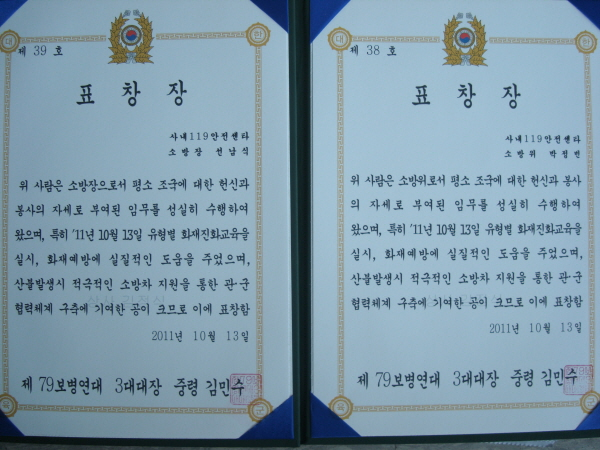 제 39 호
표 창 장
사내119안전센타
소 방 장 선 남 식
위 사람은 소방장으로서 평소 조국에 대한 헌신과
봉사의 자세로 부여된 임무를 성실히 수행하여
왔으며, 특히 '11년 10월 13일 유형별 화재진화교육을
실시, 화재예방에 실질적인 도움을 주었으며,
산불발생시 적극적인 소방차 지원을 통한 관·군
협력체계 구축에 기여한 공이 크므로 이에 표창함
2011년 10월 13일
제 79보병연대 3대대장 중령 김민수
제 38 호
표 창 장
사내119안전센타
소 방 위 박 정 빈
위 사람은 소방위로서 평소 조국에 대한 헌신과 봉사
의 자세로 부여된 임무를 성실히 수행하여
왔으며, 특히 '11년 10월 13일 유형별 화재진화교육을
실시, 화재예방에 실질적인 도움을 주었으며,
산불발생시 적극적인 소방차 지원을 통한 관·군
협력체계 구축에 기여한 공이 크므로 이에 표창함
2011년 10월 13일
제 79보병연대 3대대장 중령 김민수